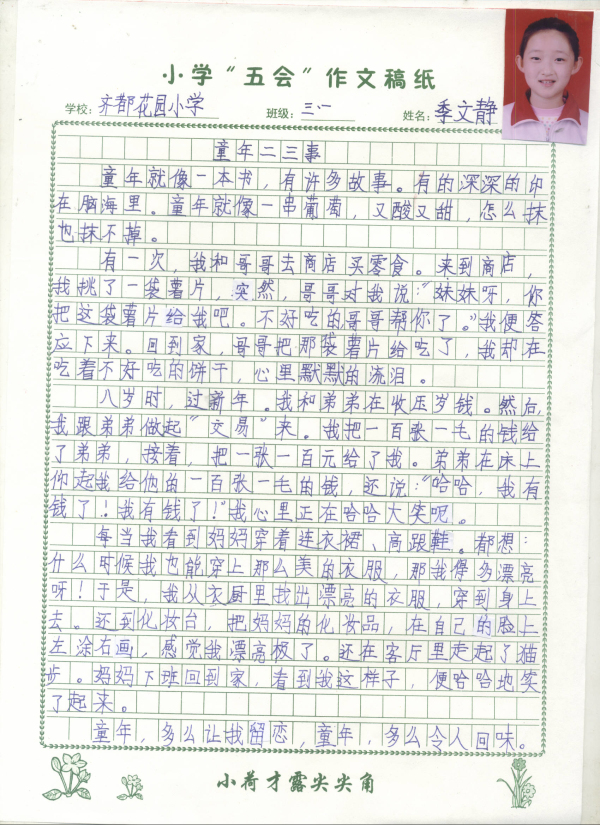 小学“五会”作文稿纸
学校：齐都花园小学 班级：三·一 姓名：季文静
童年二三事
童年就像一本书，有许多故事。有的深深的印
在脑海里。童年就像一串葡萄，又酸又甜，怎么抹
也抹不掉。
有一次，我和哥哥去商店买零食。来到商店，
我挑了一袋薯片，突然 哥哥对我说：“妹妹呀，你
把这袋薯片给我吧。不好吃的，哥哥帮你了。”我便答
应下来。回到家，哥哥把那袋薯片给吃了，我却在
吃着不好吃的饼干，心里默默的流泪。
八岁时，过新年。我和弟弟在收压岁钱。然后，
我跟弟弟做起“交易”来。我把一百张一毛的钱给
了弟弟，接着，把一张一百元给了我。弟弟在床上
你起我给他的一百张一毛的钱，还说：“哈哈，我有
钱了！我有钱了！”我心里正在哈哈大笑呢。
每当我看到妈妈穿着连衣裙、高跟鞋。都想：
什么时候我也能穿上那么美的衣服，那我得多漂亮
呀！于是，我从衣厨里找出漂亮的衣服，穿到身上
去。还到化妆台，把妈妈的化妆品，在自己的脸上
左涂右画，感觉我漂亮极了。还在客厅里走起了猫
步。妈妈下班回到家，看到我这样子，便哈哈地笑
了起来。
童年，多么让我留恋，童年，多么令人回味。
小荷才露尖尖角